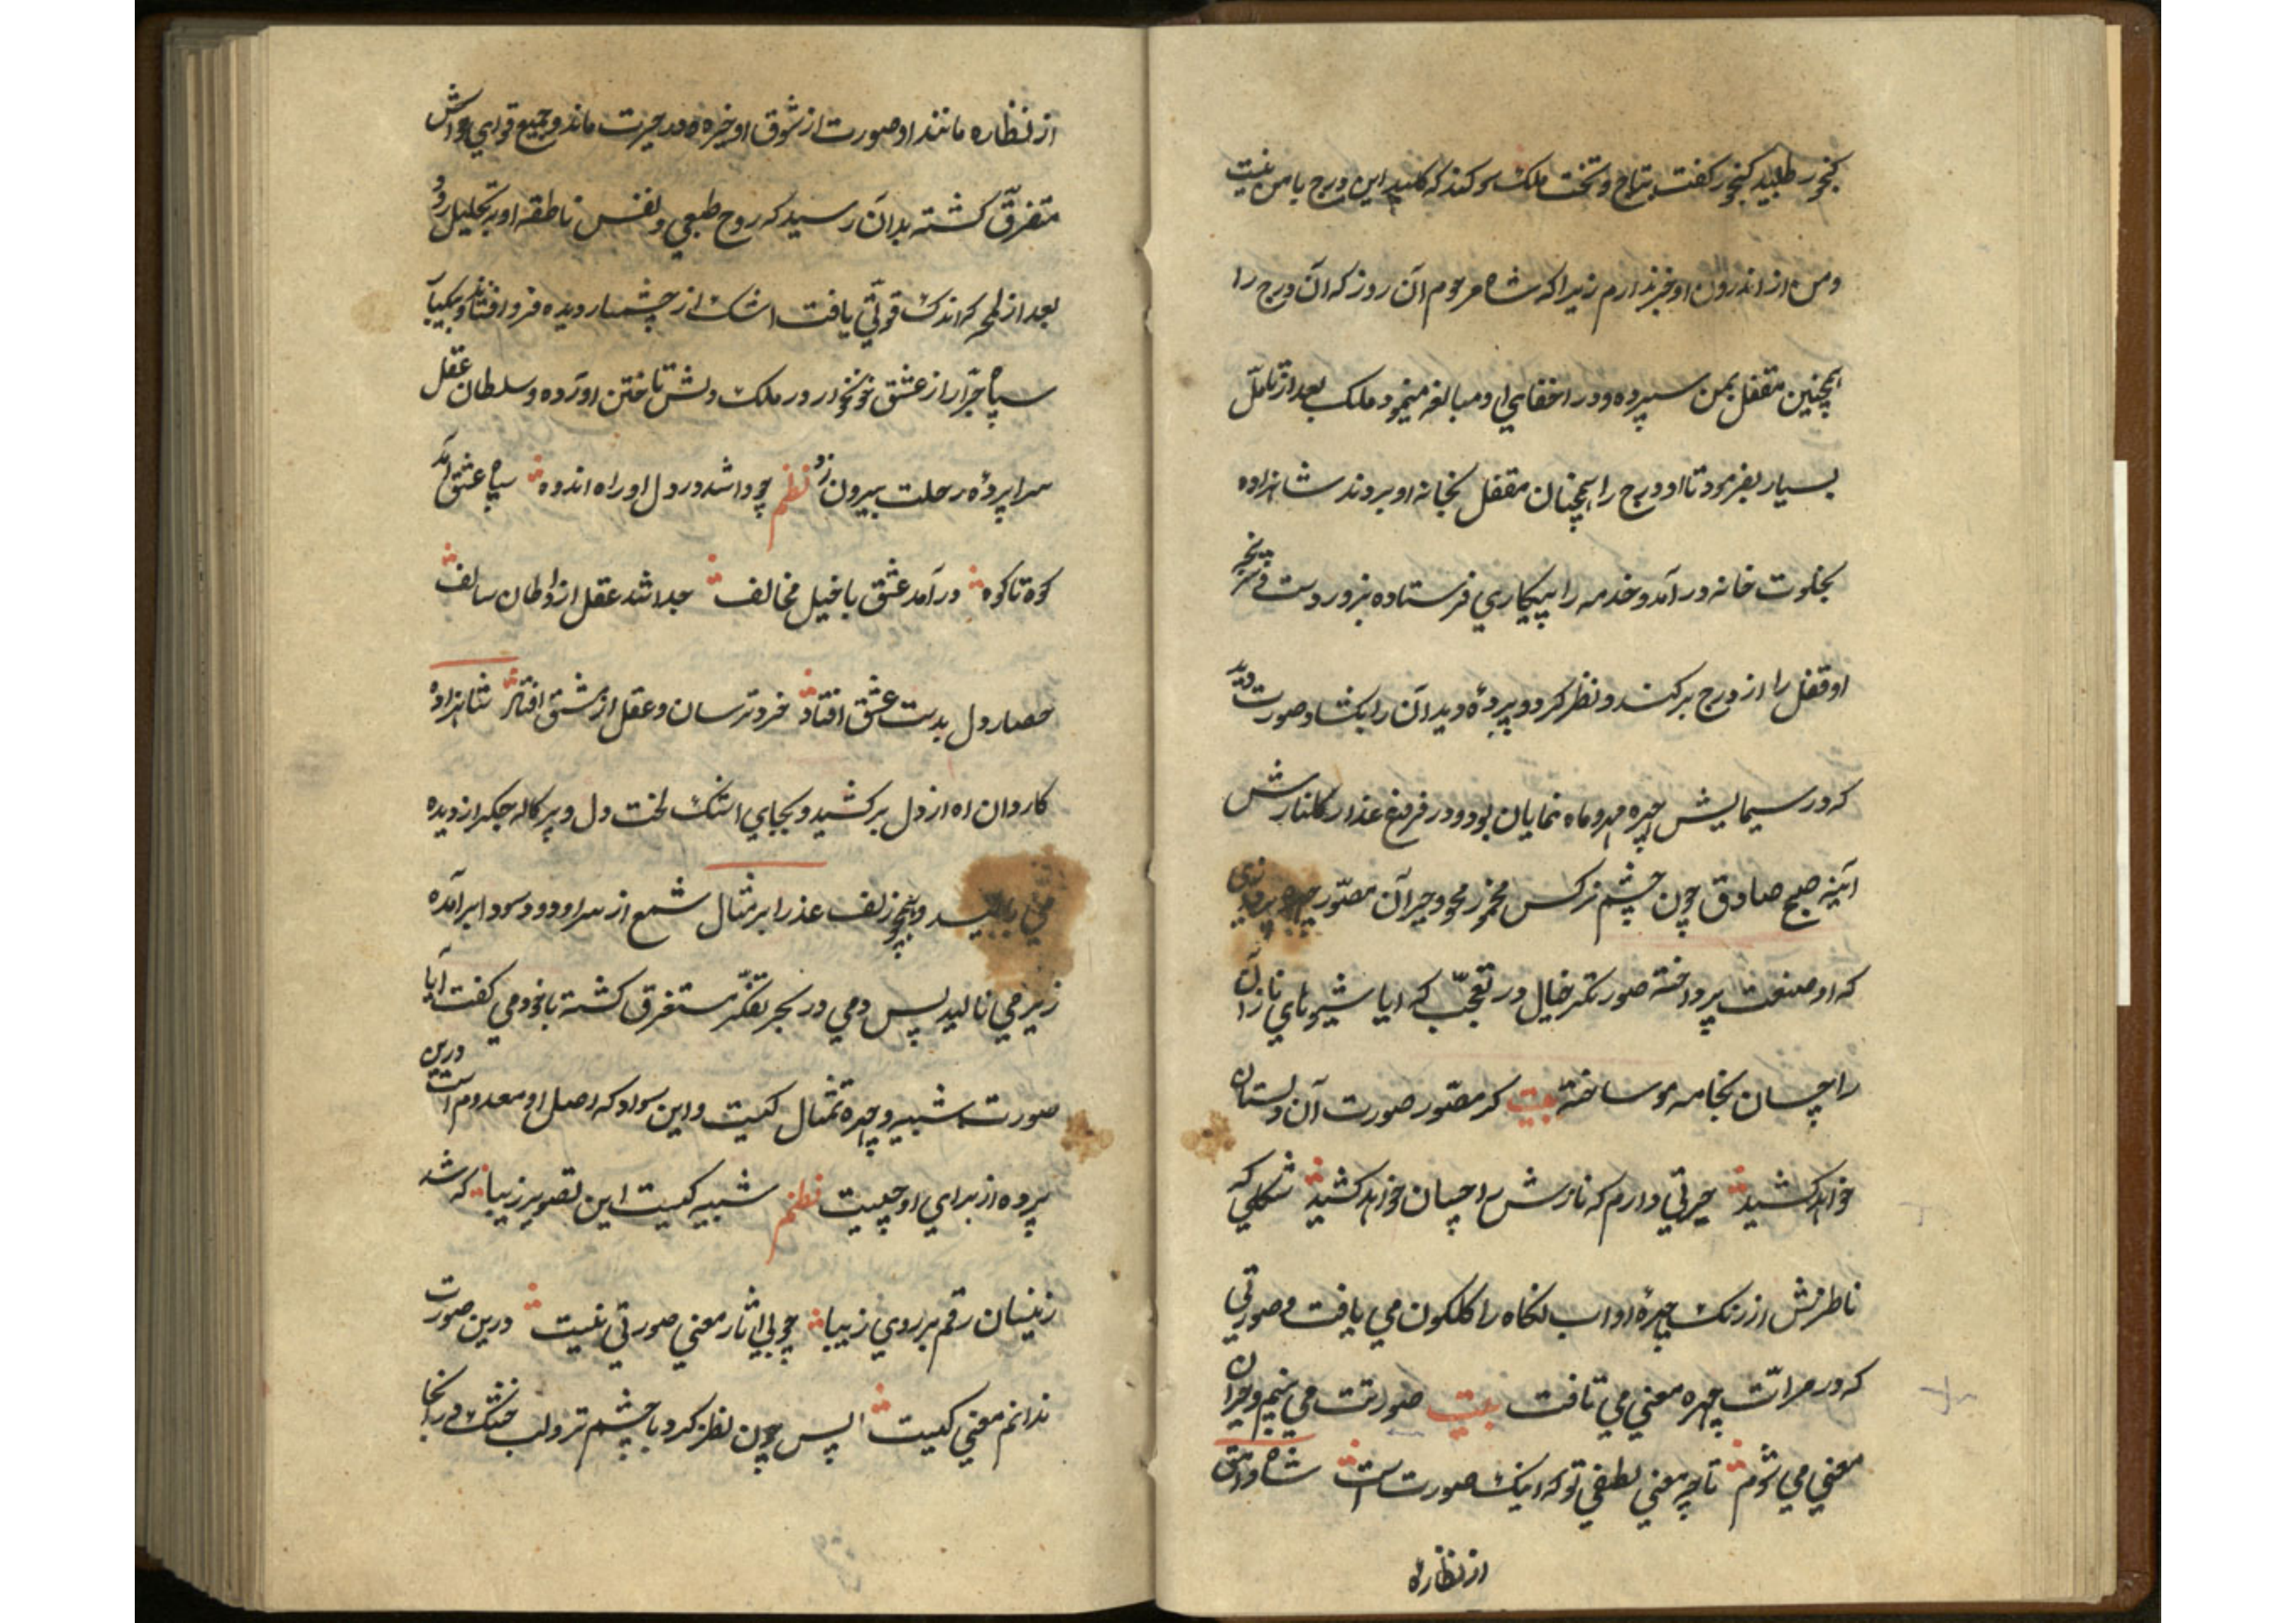 کنجور طلبید کنجور کفت بتاج و تخت ملک سوکند که کلید این درج با من نیست
و من از اندرون او خبر ندارم زیرا که شاه مرحوم آن روز که آن درج را
همچنین مقفل بمن سپرده و در اخفای او مبالغه مینمود ملک بعد از تامّل
بسیار بفرمود تا او درج را همچنان مقفل بخانه او بردند شاهزاده
بخلوت خانه در آمد و خدمه را بیکاری فرستاده بزور دست
او قفل را از درج برکند و نظر کرد و پردهٔ دید آن را بکشاد صورت دید
که در سیمایش چهره مهر و ماه نمایان بود و در فروغ عذار کلنارش
آینه صبح صادق چون چشم نرکس مخمور محو و حیران مصوّر چهره پردازی
که او صنعت پرداخته صورتکر خیال در تعجّب که ایا شیوهای ناز آن
را چسان بخامه مو ساخته بیت کر مصوّر صورت آن دلستان
خواهد کشید حیرتی دارم که نازش را چسان خواهد کشید شکلی که
ناظرش از رنک چهرهٔ او اب نکاه را کلکون می یافت و صورتی
که در مرات چهره معنی می تافت بیت صورتت می بینم و حیران
معنی می شوم تا چه معنی لطفی تو که اینک صورت است شاه وامق
از نظاره
از نظاره مانند او صورت از شوق او خیره و در حیرت ماند و جمیع قوای حواش
متفرّق کشته بدان رسید که روح طبعی و نفس ناطقه او به تحلیل رود
بعد از لمحه که اندک قوّتی یافت اشک از چشمسار دیده فرو افتاند
سپاه جرّار از عشق خونخوار در ملک دلش تاختن اورده و سلطان عقل
سراپردهٔ رحلت بیرون زد نظم چو وا شد در دل او راه اندوه سپاه عشق آمد
کوه تا کوه در آمد عشق با خیل مخالف جدا شد عقل از اوطان سالف
حصار دل بدست عشق افتاد خرد ترسان و عقل از مشق افتاد شاهزاده
کاروان اه از دل برکشید و بجای اشک لخت دل و پرکاله جکر از دیده
می و همچو زلف عذرا بر مثال شمع از سر او دود سودا بر آمده
زیر می نالید پس دمی در بحر تفکّر مستغرق کشته با خود می کفت آیا
صورت شبیه و چهره تمثال کیست و این سواد که اصل او معدوم است درین
پرده از برای او چیست نظم شبیه کیست این تصویر زیبا که شد
زینسان رقم بر روی زیبا چو بی اثار معنی صورتی نیست درین صورت
ندانم معنی کیست پس چون نظر کرد با چشم تر و لب خشک در انجا